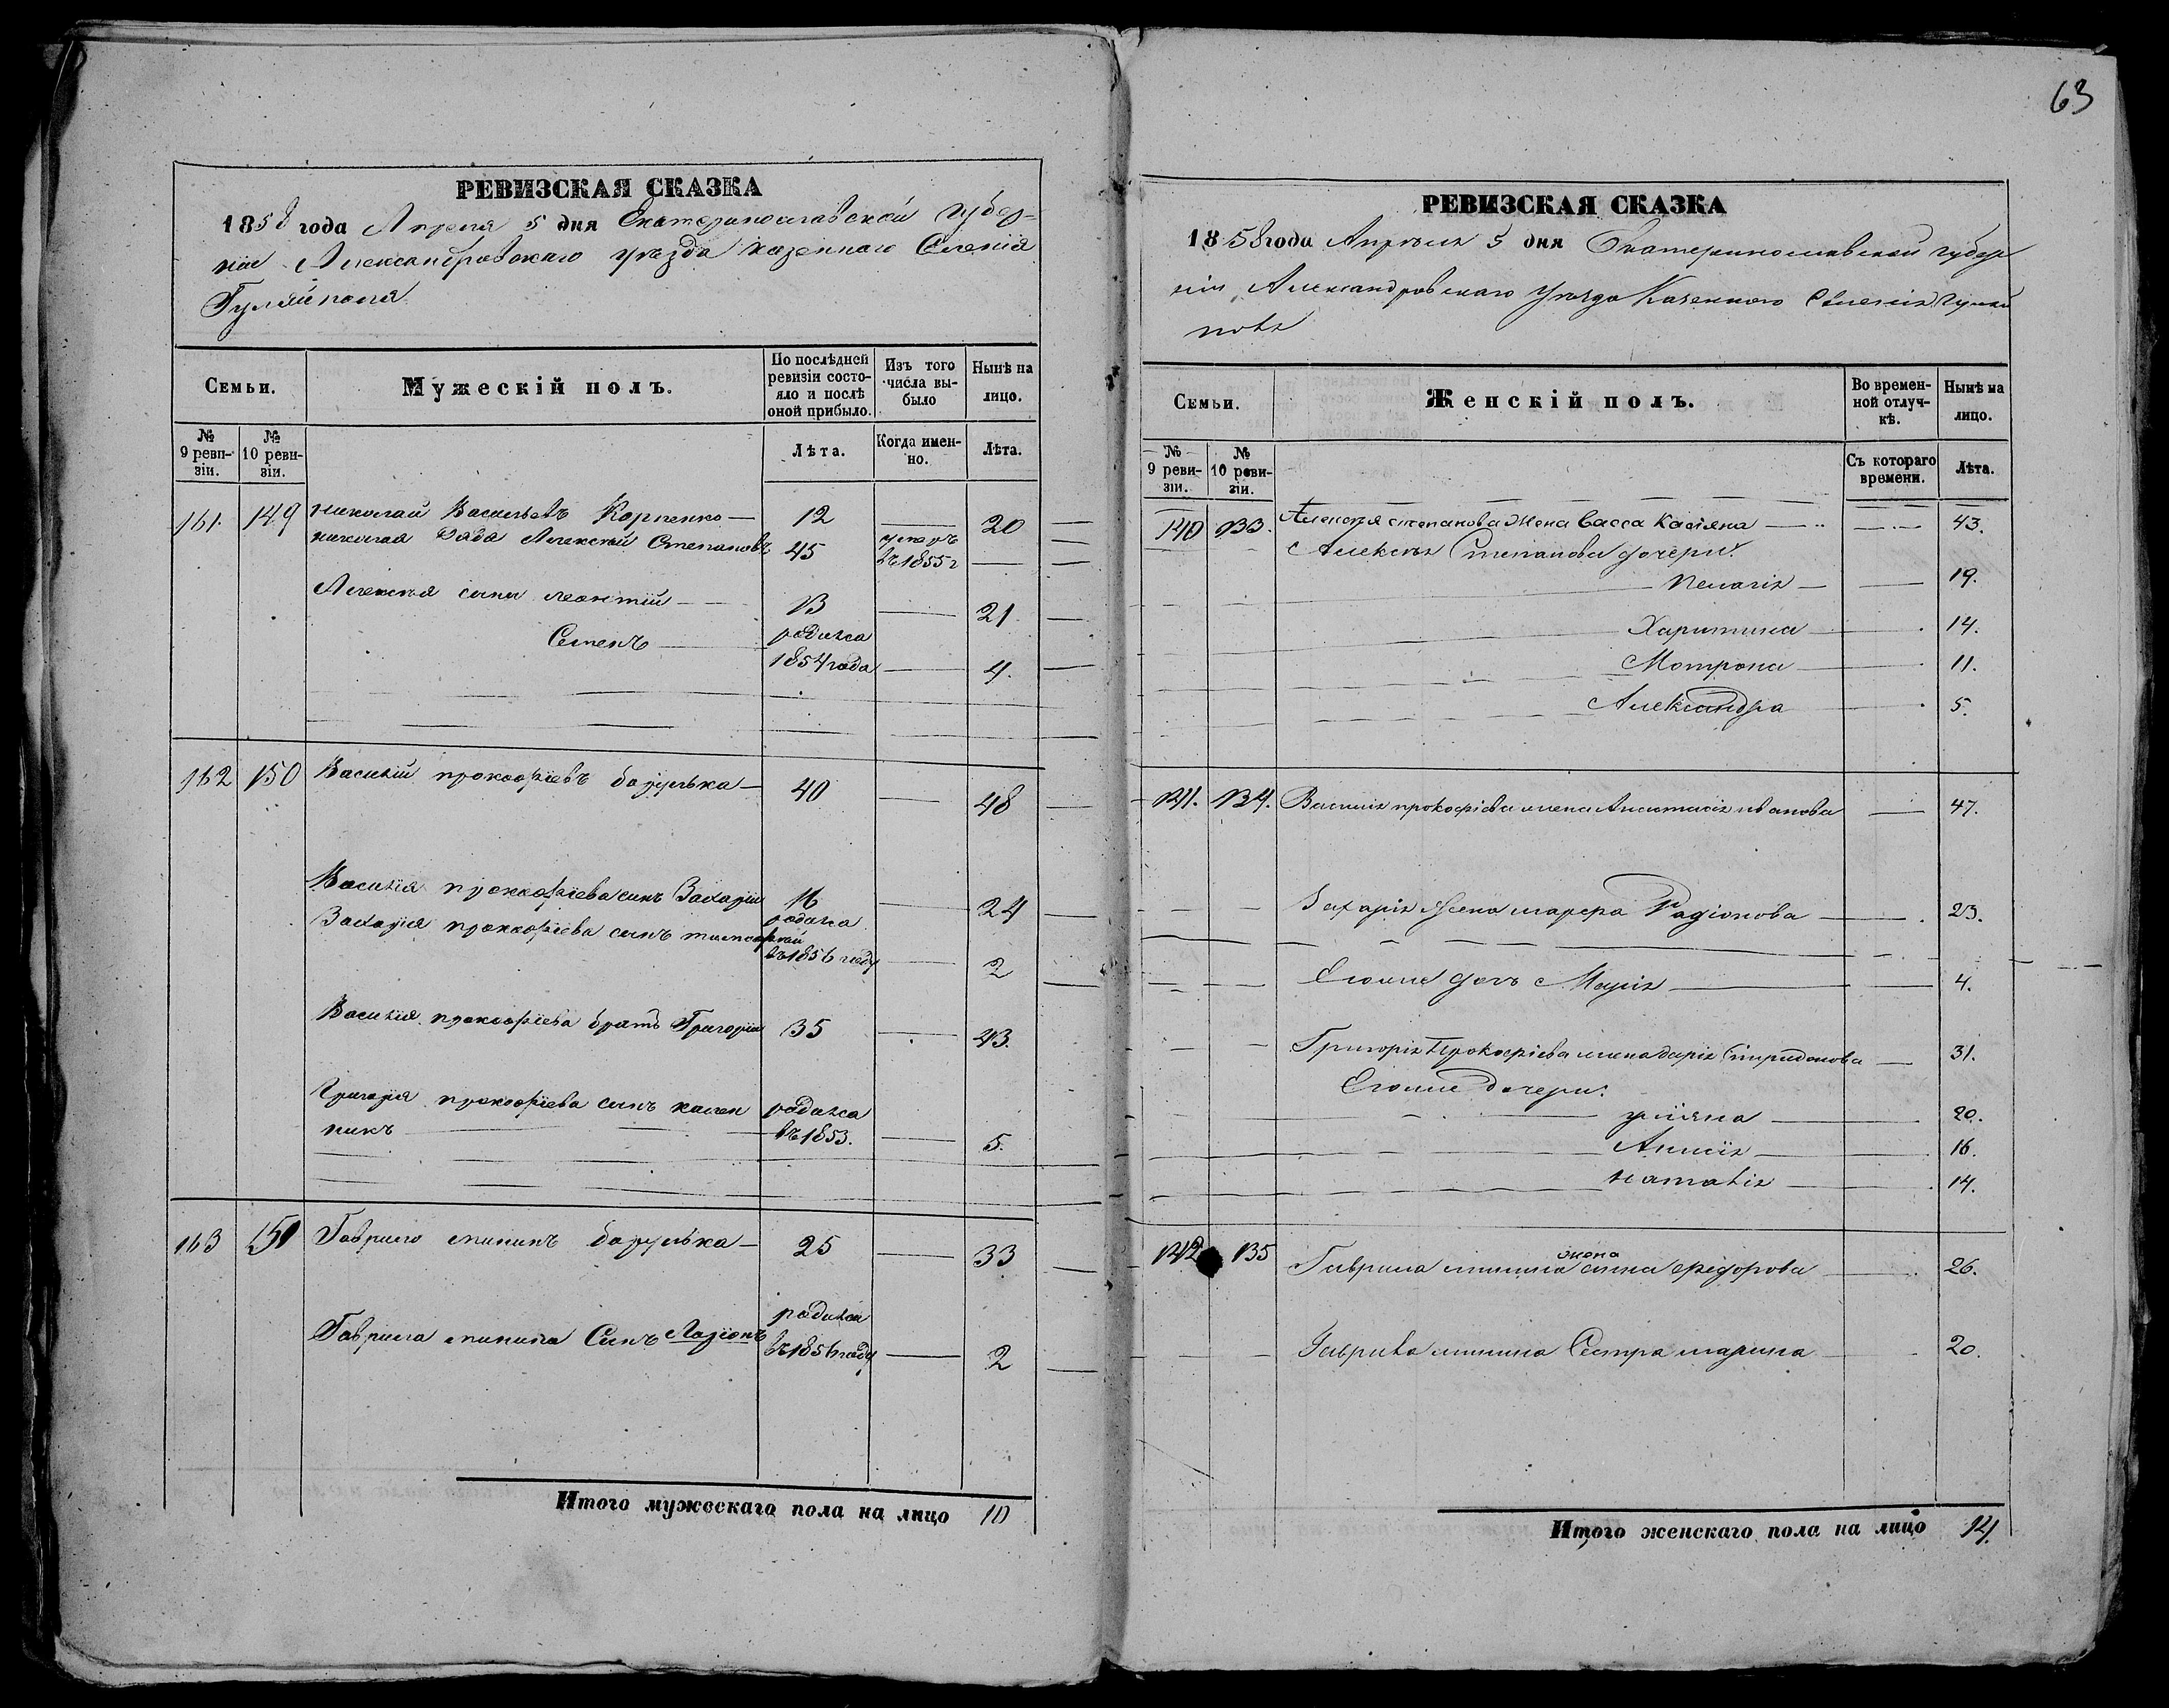 63
РЕВИЗСКАЯ СКАЗКА
1858 года Апреля 5 дня Екатеринославской Губер=
нии Александровскаго уезда казеннаго Селения
Гуляйполя
Семьи.
Мужескій полъ.
По послѣдней ревизіи состояло и послѣ оной прибыло.
Изъ того числа выбыло
Нынѣ на лицо.
№ 9 ревизіи.
№ 10 ревизіи.
Лѣта.
Когда именно.
Лѣта.
161. 149 николай Васильевъ Корпенко — 12 — 20
николая дядя Алексей Степановъ 45 умеръ въ 1855 г —
Алексея сыны леонтий — 13 — 21
Семенъ — родился 1854 года — 4.
162 150 Василий прокофиевъ — 40 — 48
Василия прокофиева сынъ Захарий 16 — 24
Захария прокофиева сынъ тимофей родился въ 1856 году — 2
Василия прокофиева братъ Григорий 35 — 43.
Григория прокофиева сынъ калени родился
никъ — въ 1853. — 5.
163 151 Гаврило мининъ — 25 — 33
Гаврила минина Сынъ родился въ 1856 году — 2
Итого мужескаго пола на лицо 10
РЕВИЗСКАЯ СКАЗКА
1858 года Апреля 5 дня Екатеринославской губер
нии Александровскаго Уезда Казенного Селения Гуляй
поля
Семьи.
Женскій полъ.
Во временной отлучкѣ.
Нынѣ на лицо.
№ 9 ревизіи.
№ 10 ревизіи.
Съ котораго времени.
Лѣта.
140 133. Алексея степанова Жена Васса Касияна — 43.
Алексея Степанова дочери:
Пелагия — 19.
Харитина — 14.
Мотрона — 11.
Александра — 5.
141. 134. Василия прокофиева жена Анастасия иванова — 47.
Захария Жена марфа Радионова — 23.
Егоже дочь Мария — 4.
Григория Прокофиева жена дария Спиридонова — 31.
Егоже дочери:
улияна — 20.
Анисия — 16.
наталия — 14.
142 135 Гаврила минина жена федорова — 26.
Гаврила минина Сестра марина 20.
Итого женскаго пола на лицо 14.